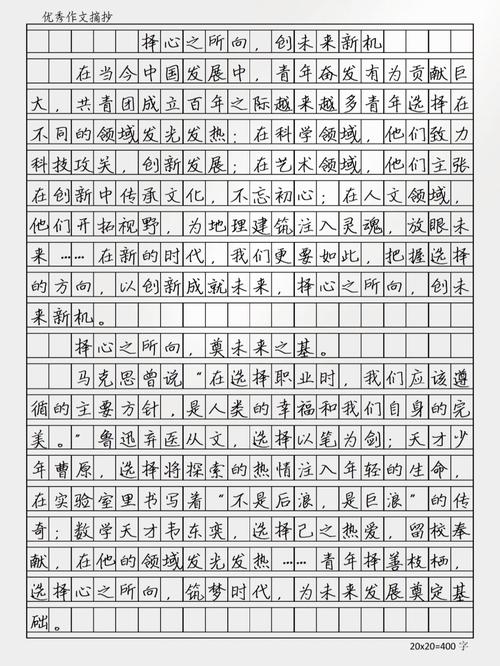 优秀作文摘抄
择心之所向，创未来新机
在当今中国发展中，青年奋发有为贡献巨
大，共青团成立百年之际越来越多青年选择在
不同的领域发光发热；在科学领域，他们致力
科技攻关，创新发展；在艺术领域，他们主张
在创新中传承文化，不忘初心；在人文领域，
他们开拓视野，为地理建筑注入灵魂，放眼未
来……在新的时代，我们更要如此，把握选择
的方向，以创新成就未来，择心之所向，创未
来新机。
择心之所向，奠未来之基。
马克思曾说“在选择职业时，我们应该遵
循的主要方针，是人类的幸福和我们自身的完
美。”鲁迅弃医从文，选择以笔为剑；天才少
年曹原，选择将探索的热情注入年轻的生命，
在实验室里书写着“不是后浪，是巨浪”的传
奇；数学天才韦东奕，选择己之热爱，留校奉
献，在他的领域发光发热……青年择善枝栖，
选择心之所向，筑梦时代，为未来发展奠定基
础。
20x20=400 字